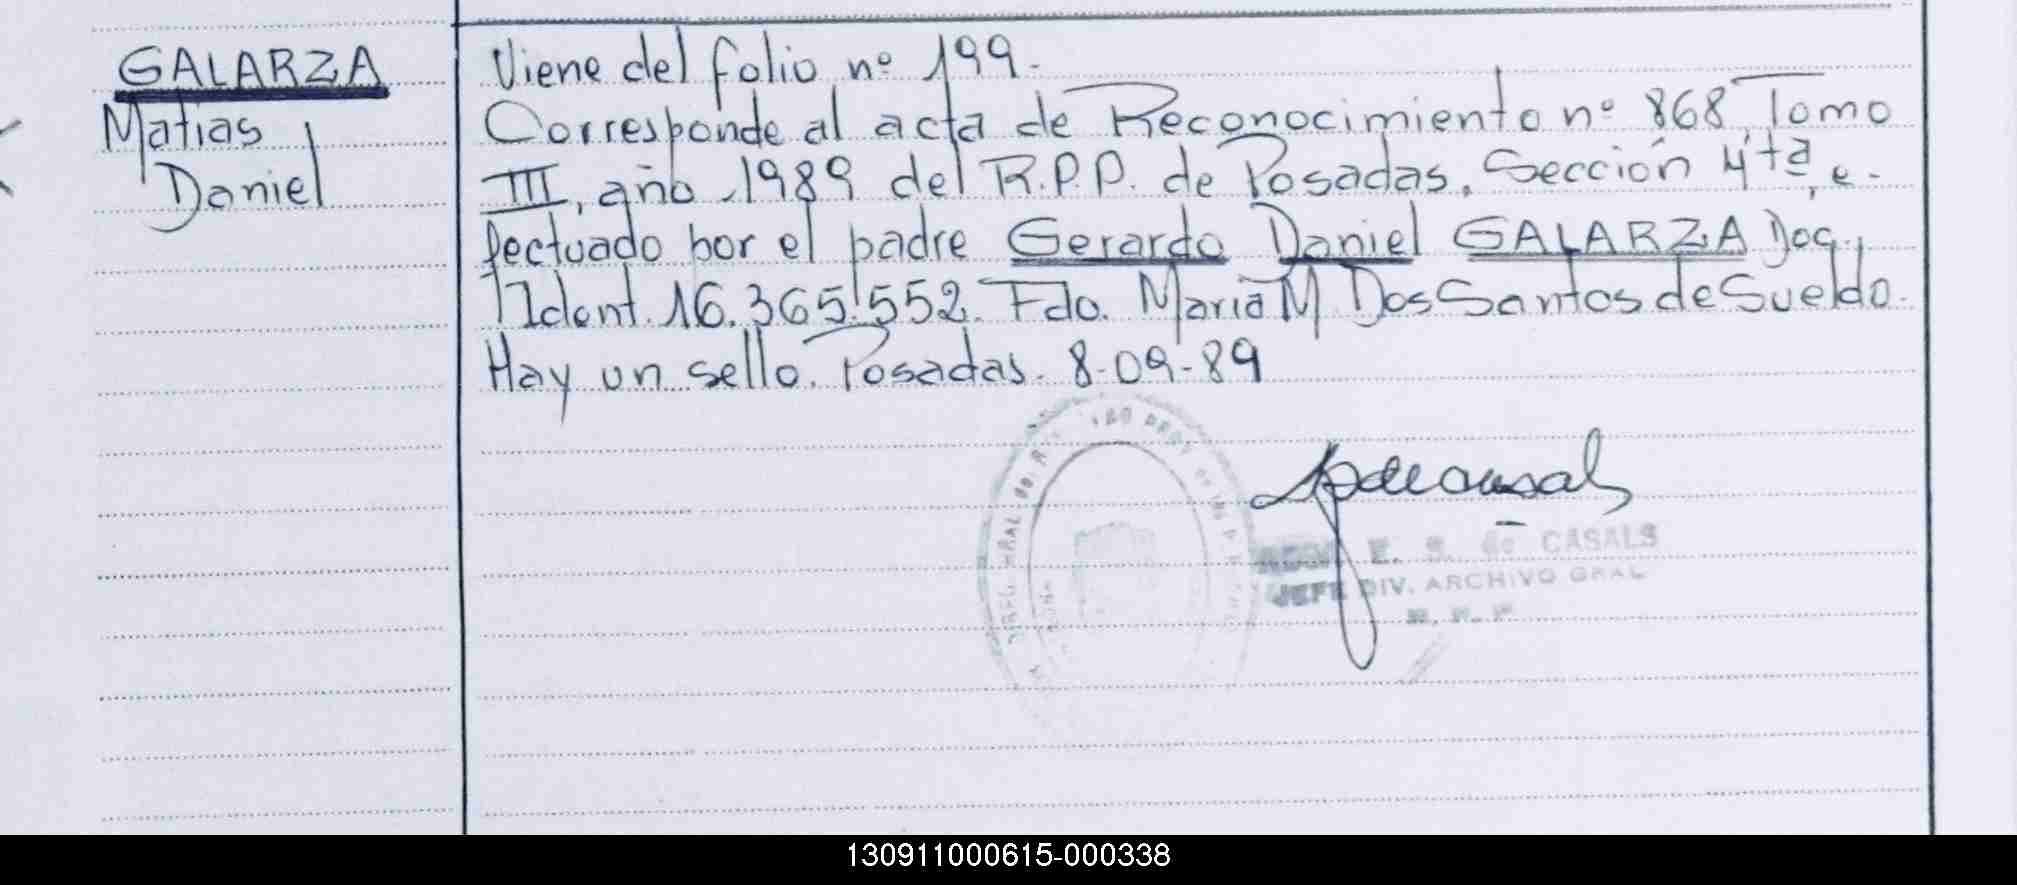 GALARZA
Matias
Daniel
Viene del folio nº 199.
Corresponde al acta de Reconocimiento nº 868, Tomo
III, año 1989 del R.P.P. de Posadas, Sección 4ta, e-
fectuado por el padre Gerardo Daniel GALARZA Doc.
Ident. 16.365.552. Fdo. Maria M Dos Santos de Sueldo.
Hay un sello. Posadas. 8-09-89
E. S. de CASALS
JEFE DIV. ARCHIVO GRAL
R. P. P
130911000615-000338